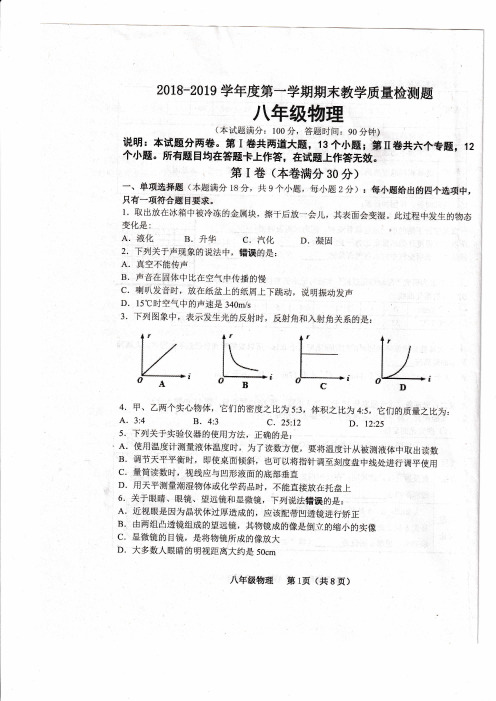 2018-2019 学年度第一学期期末教学质量检测题
八年级物理
(本试题满分：100分，答题时间：90分钟)
说明：本试题分两卷。第Ⅰ卷共两道大题，13个小题；第Ⅱ卷共六个专题，12
个小题。所有题目均在答题卡上作答，在试题上作答无效。
第Ⅰ卷（本卷满分30分）
一、单项选择题（本题满分18分，共9个小题，每小题2分）：每小题给出的四个选项中，
只有一项符合题目要求。
1．取出放在冰箱中被冷冻的金属块，擦干后放一会儿，其表面会变湿。此过程中发生的物态
变化是:
A．液化 B．升华 C．汽化 D．凝固
2．下列关于声现象的说法中，错误的是：
A．真空不能传声
B．声音在固体中比在空气中传播的慢
C．喇叭发音时，放在纸盆上的纸屑上下跳动，说明振动发声
D．15℃时空气中的声速是340m/s
3．下列图象中，表示发生光的反射时，反射角和入射角关系的是：
r r r r
O i O i O i O i
A B C D
4．甲、乙两个实心物体，它们的密度之比为5:3，体积之比为4:5，它们的质量之比为：
A．3:4 B．4:3 C．25:12 D．12:25
5．下列关于实验仪器的使用方法，正确的是：
A．使用温度计测量液体温度时，为了读数方便，要将温度计从被测液体中取出读数
B．调节天平平衡时，即使桌面倾斜，也可以将指针调至刻度盘中线处进行调平使用
C．量筒读数时，视线应与凹形液面的底部垂直
D．用天平测量潮湿物体或化学药品时，不能直接放在托盘上
6．关于眼睛、眼镜、望远镜和显微镜，下列说法错误的是：
A．近视眼是因为晶状体过厚造成的，应该配带凹透镜进行矫正
B．由两组凸透镜组成的望远镜，其物镜成的像是倒立的缩小的实像
C．显微镜的目镜，是将物镜所成的像放大
D．大多数人眼睛的明视距离大约是50cm
八年级物理 第1页（共8页）